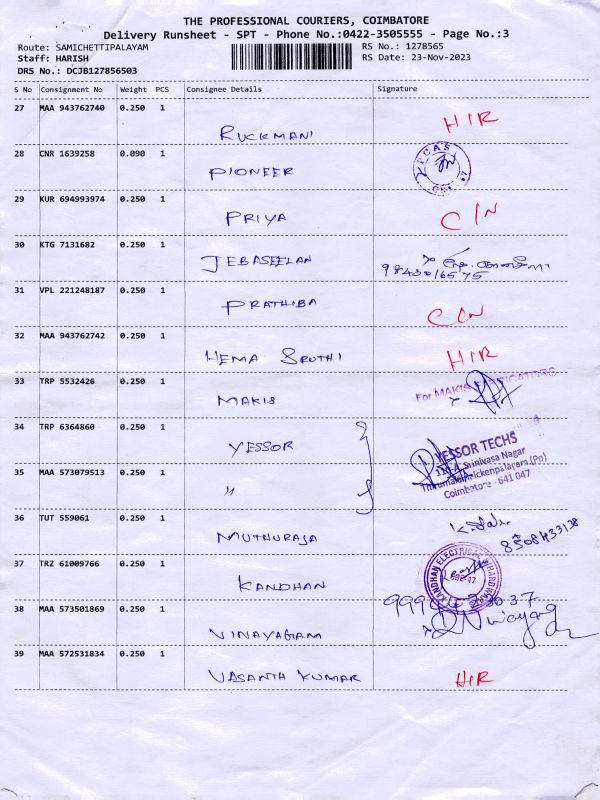 THE PROFESSIONAL COURIERS, COIMBATORE
Delivery Runsheet - SPT - Phone No.:0422-3505555 - Page No.:3
Route: SAMICHETTIPALAYAM RS No.: 1278565
Staff: HARISH RS Date: 23-Nov-2023
DRS No.: DCJB127856503
S No Consignment No Weight PCS Consignee Details Signature
27 MAA 943762740 0.250 1 RUCKMANI HIR
28 CNR 1639258 0.090 1 PIONEER
29 KUR 694993974 0.250 1 PRIYA C/N
30 KTG 7131682 0.250 1 JEBASEELAN
31 VPL 221248187 0.250 1 PRATHIBA
32 MAA 943762742 0.250 1 HEMA SRUTHI HIR
33 TRP 5532426 0.250 1 MAKIS For MAKIS
34 TRP 6364860 0.250 1 YESSOR YESSOR TECHS
Srinivasa Nagar
35 MAA 573079513 0.250 1 〃 (Po)
Coimbatore - 641 047
36 TUT 559061 0.250 1 MUTHURAJA 8508433128
37 TRZ 61009766 0.250 1 KANDHAN KANDHAN ELECTRICAL & HARDWARE
38 MAA 573501869 0.250 1 VINAYAGAM
39 MAA 572531834 0.250 1 VASANTH KUMAR HIR